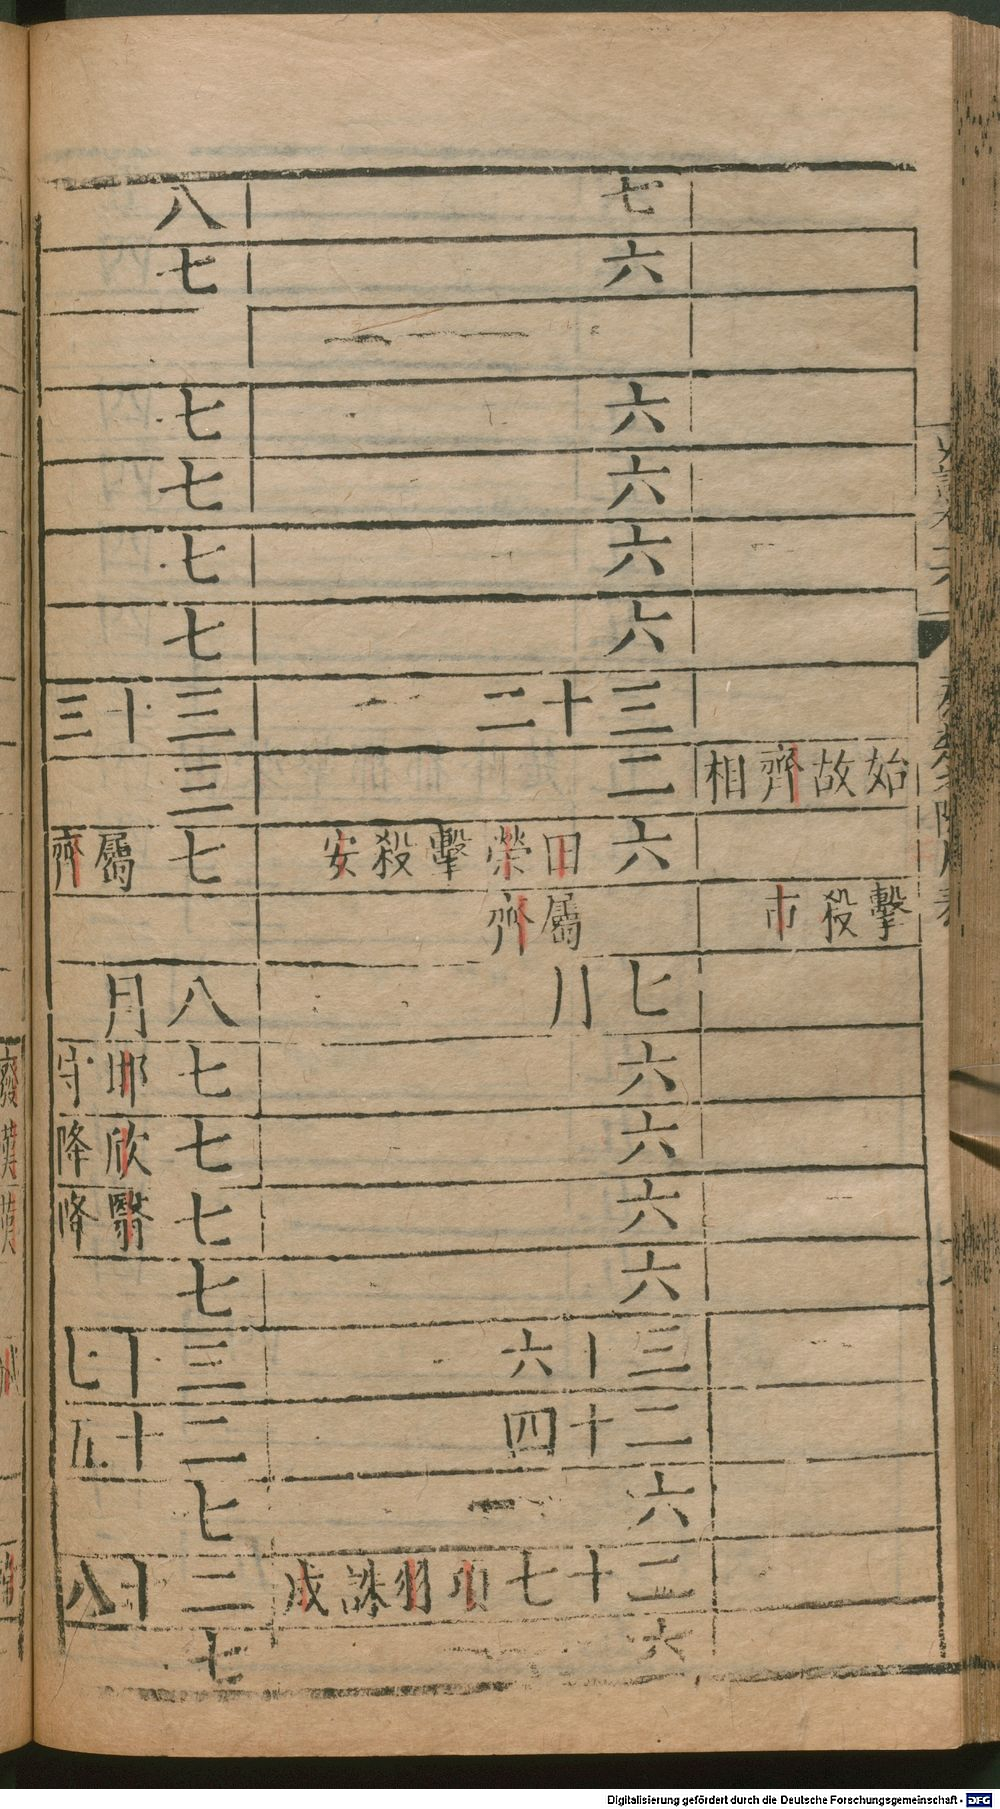 始故齊相
擊殺市
七
六
六
六
六
六
三十二
二
六田榮擊殺安
屬齊
七月
六
六
六
六
三十六
二十四
六
二十七項羽誅成
六
八
七
七
七
七
七
三十三
三
七屬齊
八月
七邯守
七欣降
七翳降
七
三十七
二十五
七
二十八
七
Digitalisierung gefördert durch die Deutsche Forschungsgemeinschaft - DFG